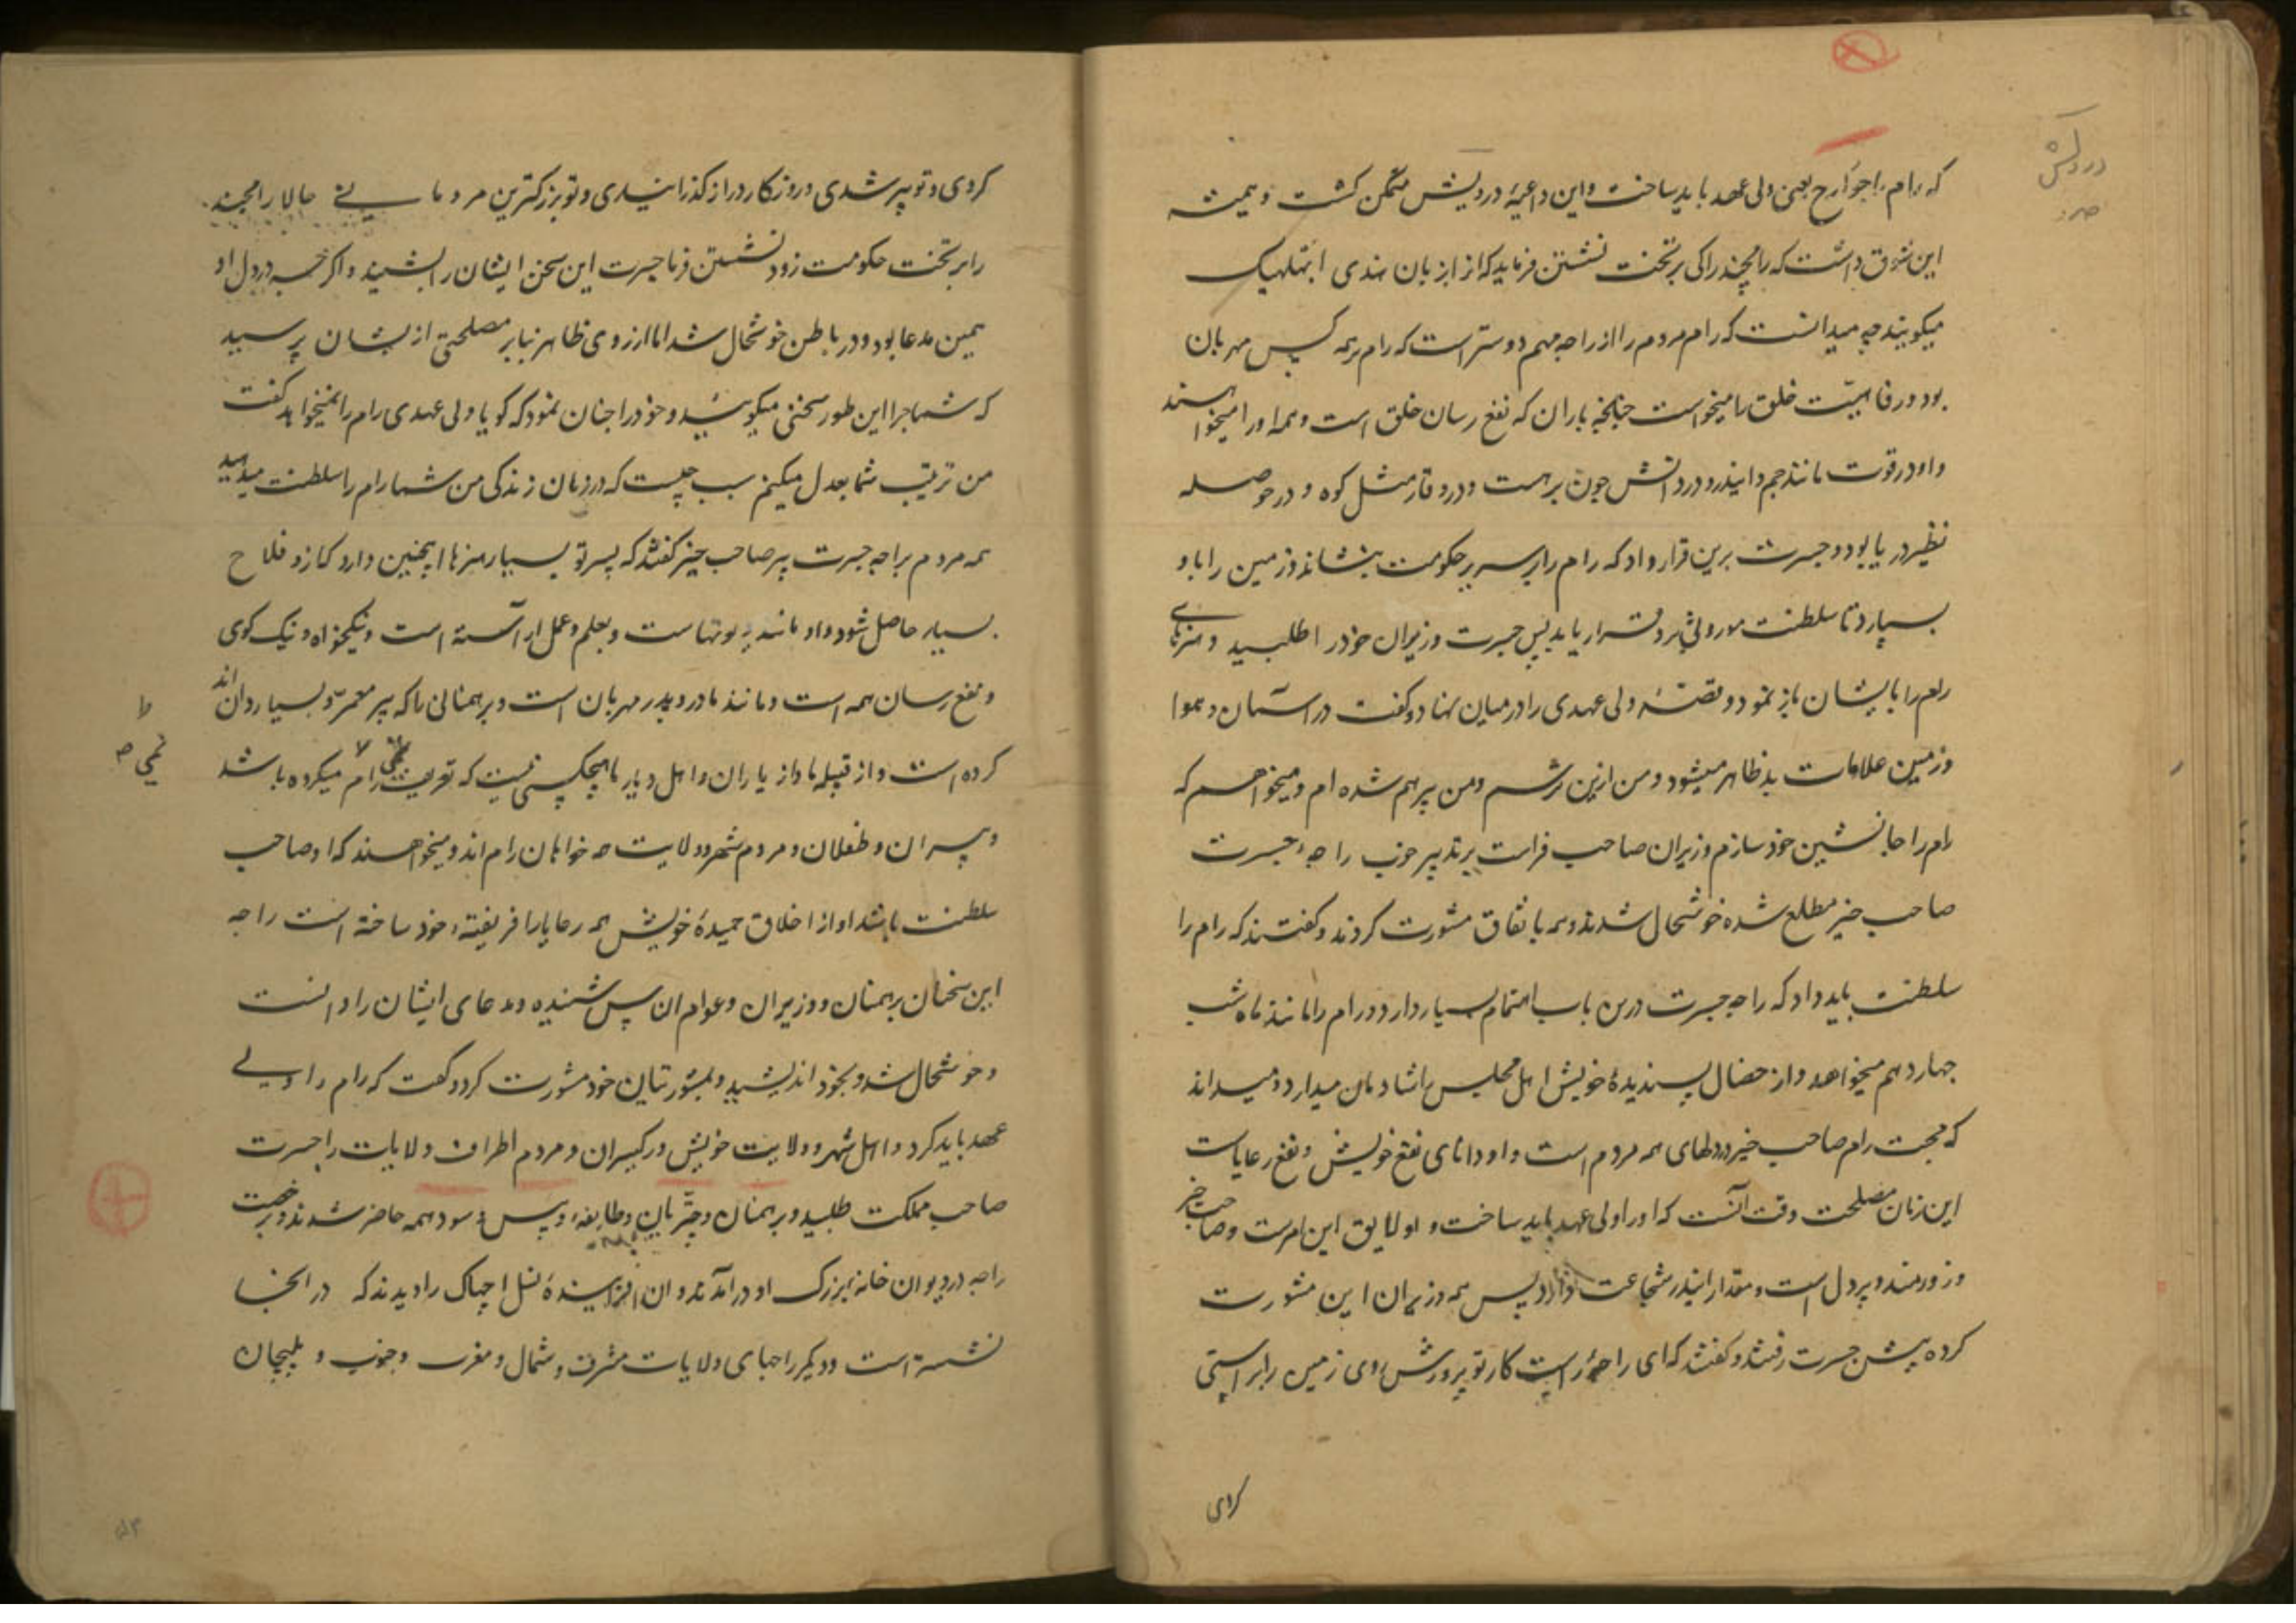 که رام را جوارج یعنی ولی عهد باید ساخت و این داعیه در دلیش متمکن گشت و همیشه
این شوق داشت که رامچند را کی بر تخت نشستن فرماید که از ابزبان هندی ابهتکهیک
میگویند چه میدانست که رام مردم را از راجه مهم دوستر است که رام بر همه کس مهربان
بود و رفاهیت خلق را میخواست چنانچه باران که نفع رسان خلق است و همه او را میخواستند
و او در قوت مانند جم و ایندر و در دانش چون برهست و در وقار مثل کوه و در حوصله
نظیر دریا بود و جسرت برین قرار داد که رام را بر سریر حکومت بنشاند و زمین را باو
بسپارد تا سلطنت موروثی برو قرار یابد پس جسرت وزیران خود را طلبید و هنرهای
رام را بایشان باز نمود و قصهٔ ولی عهدی را درمیان نهاد و گفت در آسمان و هوا
و زمین علامات بد ظاهر میشود و من ازین ترسم و من پیر هم شده ام و میخواهم که
رام را جانشین خود سازم وزیران صاحب فراست بر تدبیر خوب راجه جسرت
صاحب خیر مطلع شده خوشحال شدند و همه باتفاق مشورت کردند و گفتند که رام را
سلطنت باید داد که راجه جسرت درین باب اهتمام بسیار دارد و رام را مانند ماه شب
چهاردهم میخواهد و از خصال پسندیدهٔ خویش اهل مجلس را شادمان میدارد و میداند
که محبت رام صاحب خیر در دلهای همه مردم است و او دانای نفع خویش و نفع رعایاست
این زنان مصلحت وقت آنست که او را ولی عهد باید ساخت و او لایق این امرست و صاحب خیر
و زورمند و پر دل است و مقدار ایندر شجاعت دارد پس همه وزیران این مشورت
کرده پیش جسرت رفتند و گفتند که ای راجه راست کار تو پرورش روی زمین را براستی
کردی
دردلش
کردی و تو پیر شدی و روزگار دراز گذرانیدی و تو بزرگترین مردمانی حالا رامچند
را بر تخت حکومت زود نشستن فرما جسرت این سخن ایشان را بشنید و اگرچه در دل او
همین مدعا بود و در باطن خوشحال شد اما از روی ظاهر بنابر مصلحتی از ایشان پرسید
که شما چرا این طور سخنی میگویید و خود را چنان نمود که گویا ولی عهدی رام را نمیخواهد گفت
من تربیت شما بعدل میکنم سبب چیست که در زمان زندگی من شما رام را سلطنت میدهید
همه مردم براجه جسرت پیر صاحب خیر گفتند که پسر تو بسیار هنرها اینچنین دارد که ازو فلاح
بسیار حاصل شود و او مانند دیوتهاست و بعلم و عمل آراسته است و نیکخواه و نیک گوی
و نفع رسان همه است و مانند مادر و پدر مهربان است و برهمنانی را که پیر معمر و بسیار دان اند
کرده است و از قبیله ما و از یاران و اهل دیار ما هیچکسی نیست که تعریف رام نمی میکرده باشد
و پسران و طفلان و مردم شهر و ولایت همه خواهان رام اند و میخواهند که او صاحب
سلطنت باشد او از اخلاق حمیدهٔ خویش همه رعایا را فریفتهٔ خود ساخته است راجه
این سخنان برهمنان و وزیران و عوام الناس شنیده و مدعای ایشان را دانست
و خوشحال شد و بخود اندیشید و بمشورتیان خود مشورت کرد و گفت که رام را ولی
عهد باید کرد و اهل شهر و ولایت خویش و رکهیسران و مردم اطراف ولایات را جسرت
صاحب مملکت طلبید و برهمنان و چتریان و طایفهٔ ویس و سود همه حاضر شدند و برخصت
راجه در دیوان خانه بزرگ او درآمدند و آن افزایندهٔ نسل اچهاک را دیدند که در آنجا
نشسته است و دیگر راجهای ولایات مشرق و شمال و مغرب و جنوب و ملیچان
نمی صح